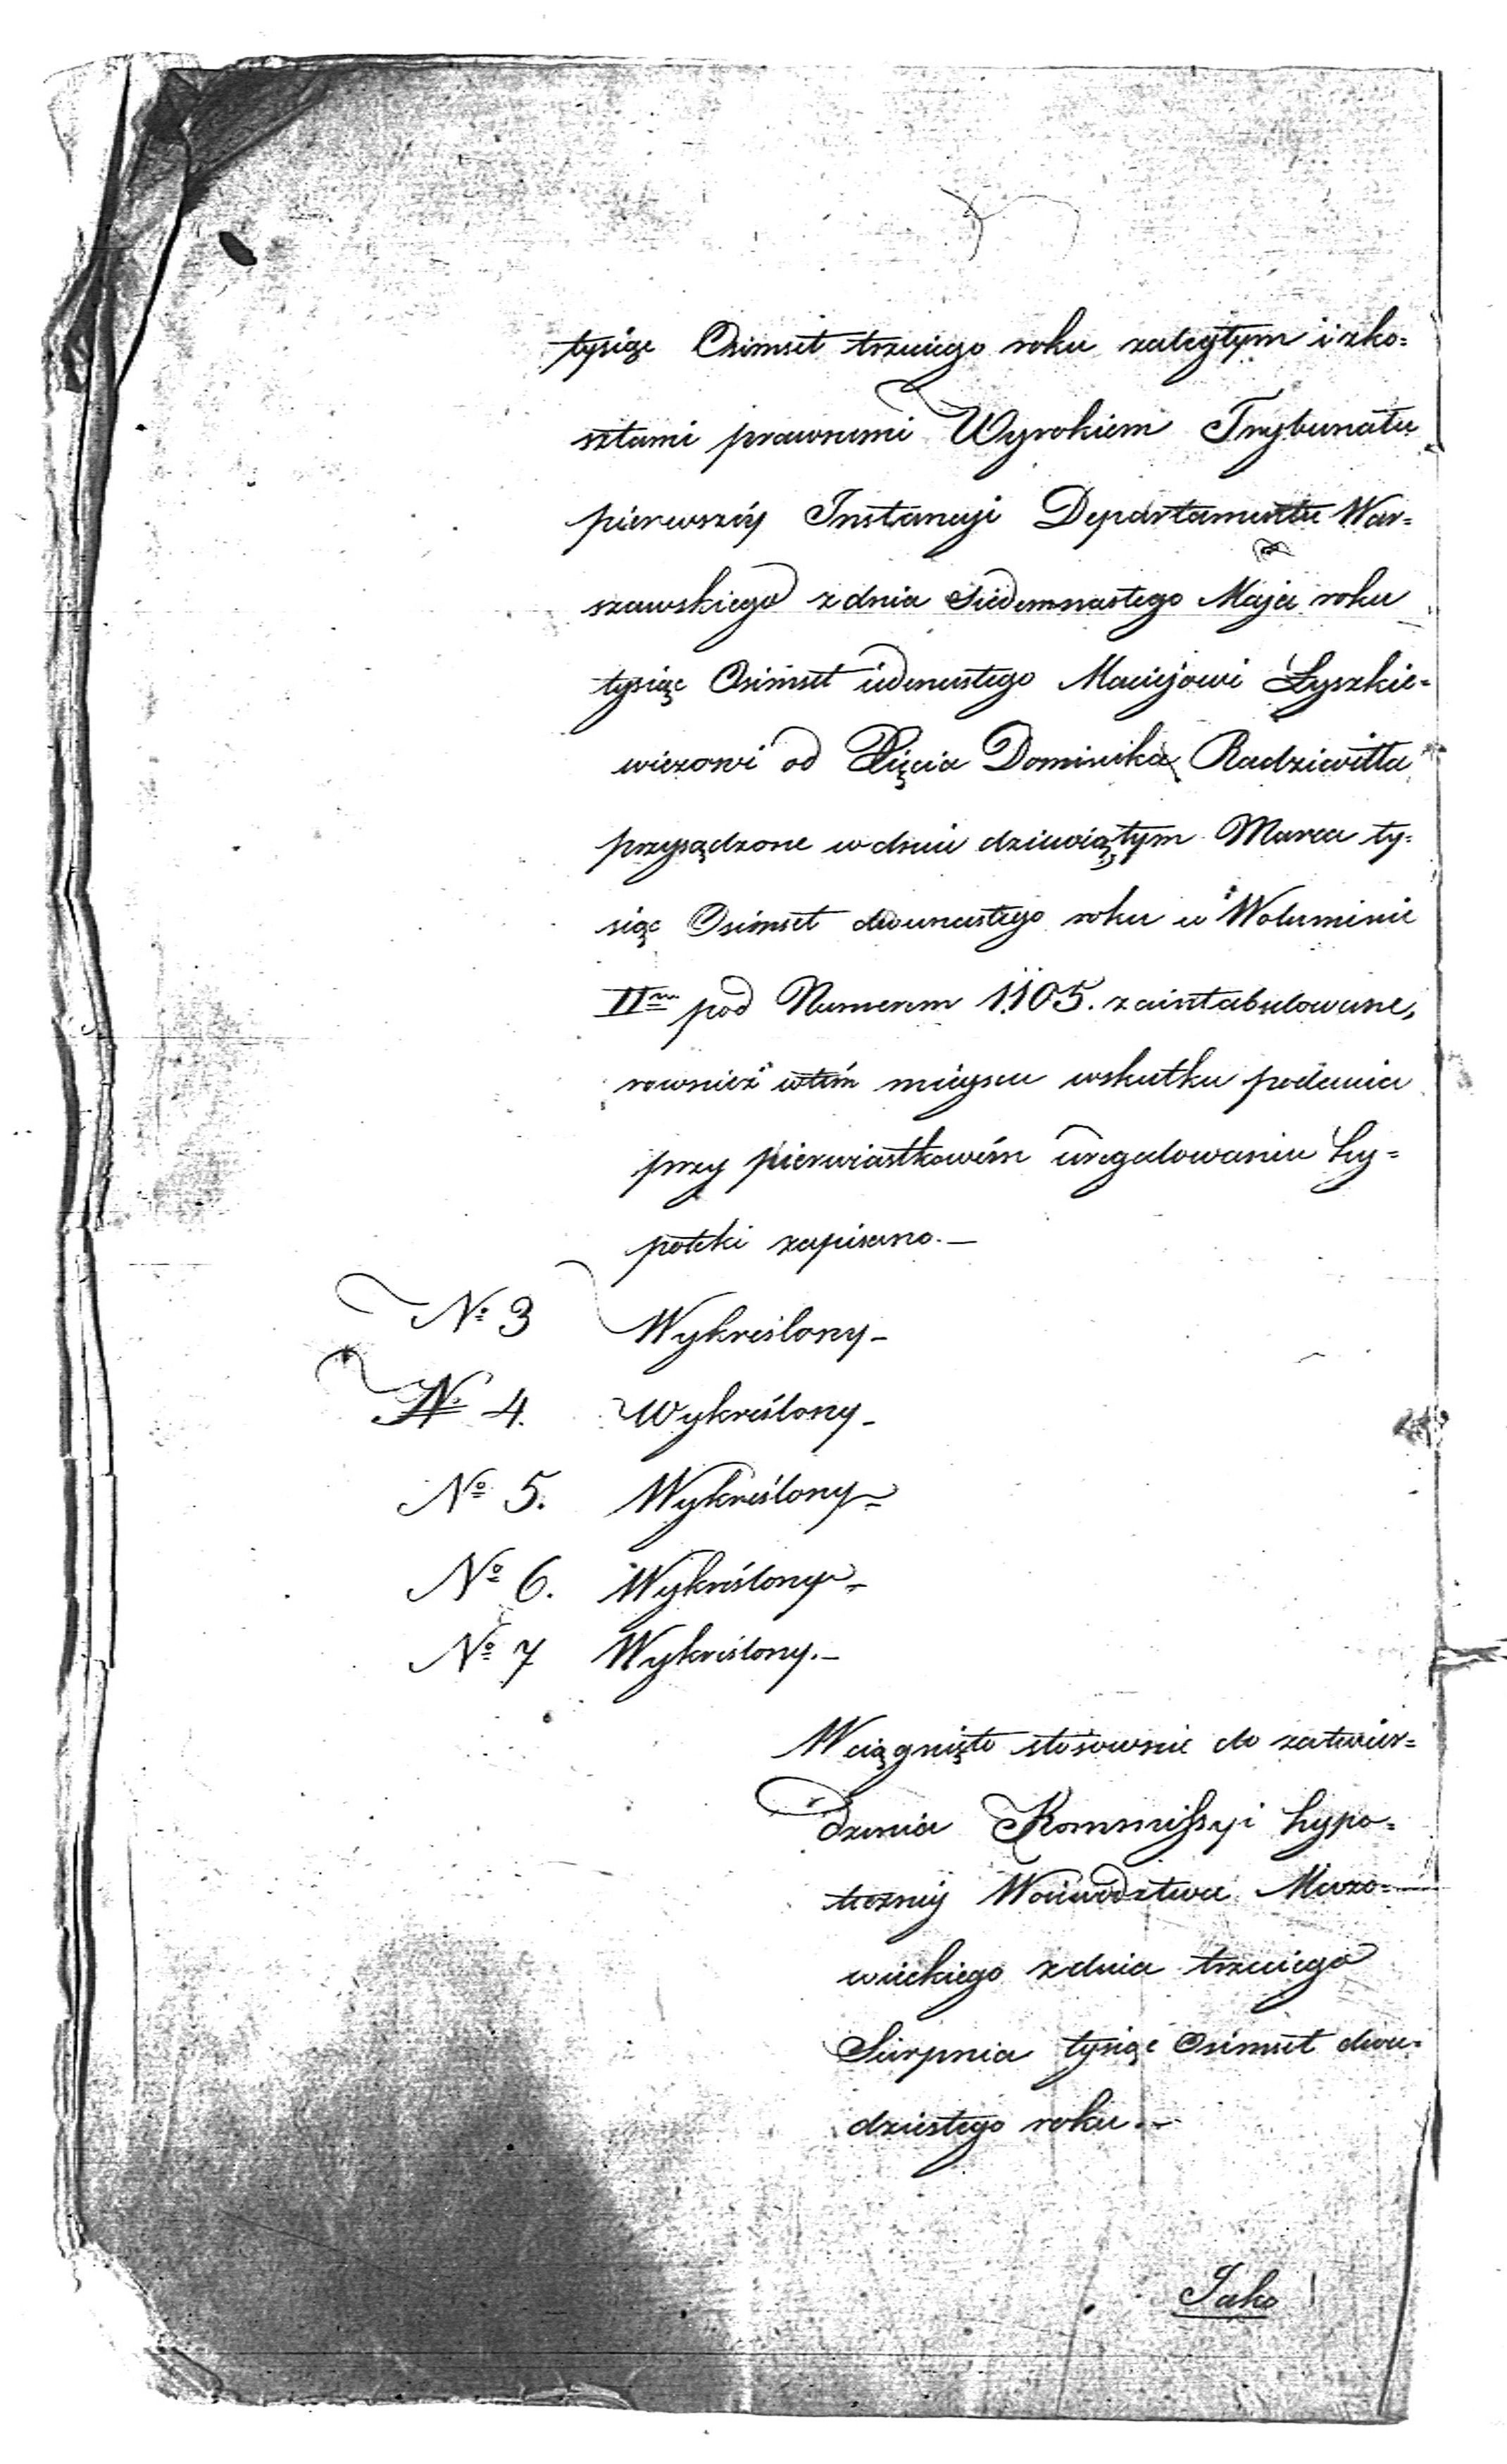 tysiąc Osimset trzeciego roku zaległym i zko=
sztami prawnemi Wyrokiem Trybunału
pierwszéy Instancyi Departamentu War=
szawskiego z dnia Siedemnastego Maja roku
tysiąc Osimset iedenastego Maciejowi Łyszkie=
wiczowi od Xięcia Dominika Radziwiłła
przysądzone w dniu dziewiątym Marca ty=
siąc Osimset dwunastego roku w Woluminie
II<sup>m</sup> pod Numerem 1105. zaintabulowane,
rownież w tém mieyscu wskutku podania
przy pierwiastkowém uregulowaniu hy=
poteki zapisano.—
N<sup>o</sup> 3 Wykreślony—
N<sup>o</sup> 4. Wykreślony—
N<sup>o</sup> 5. Wykreślony—
N<sup>o</sup> 6. Wykreślony—
N<sup>o</sup> 7 Wykreślony.—
Wciągnięto stósownie do zatwier=
dzenia Kommissyi hypo=
teczney Woiewództwa Mazo=
wieckiego z dnia trzeciego
Sierpnia tysiąc Osimset dwu=
dziestego roku.—
Jako